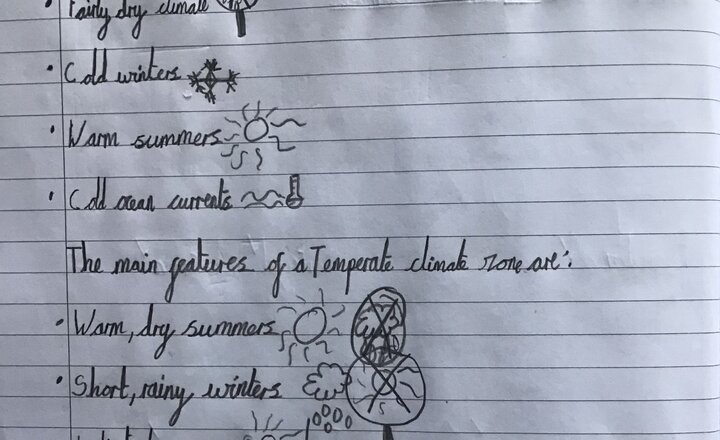 • Fairly dry climate
• Cold winters
• Warm summers
• Cold ocean currents
The main features of a Temperate climate zone are:
• Warm, dry summers
• Short, rainy winters